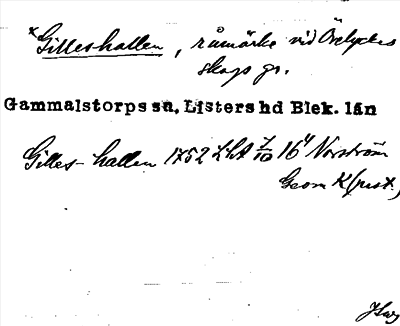 *Gilleshallen, råmärke vid Örelyckes
skogs gr.
Gammalstorps sn, Listers hd Blek. län
Gilles-hallen 1752 LhA 7/10 16 4 Norström
Geom K